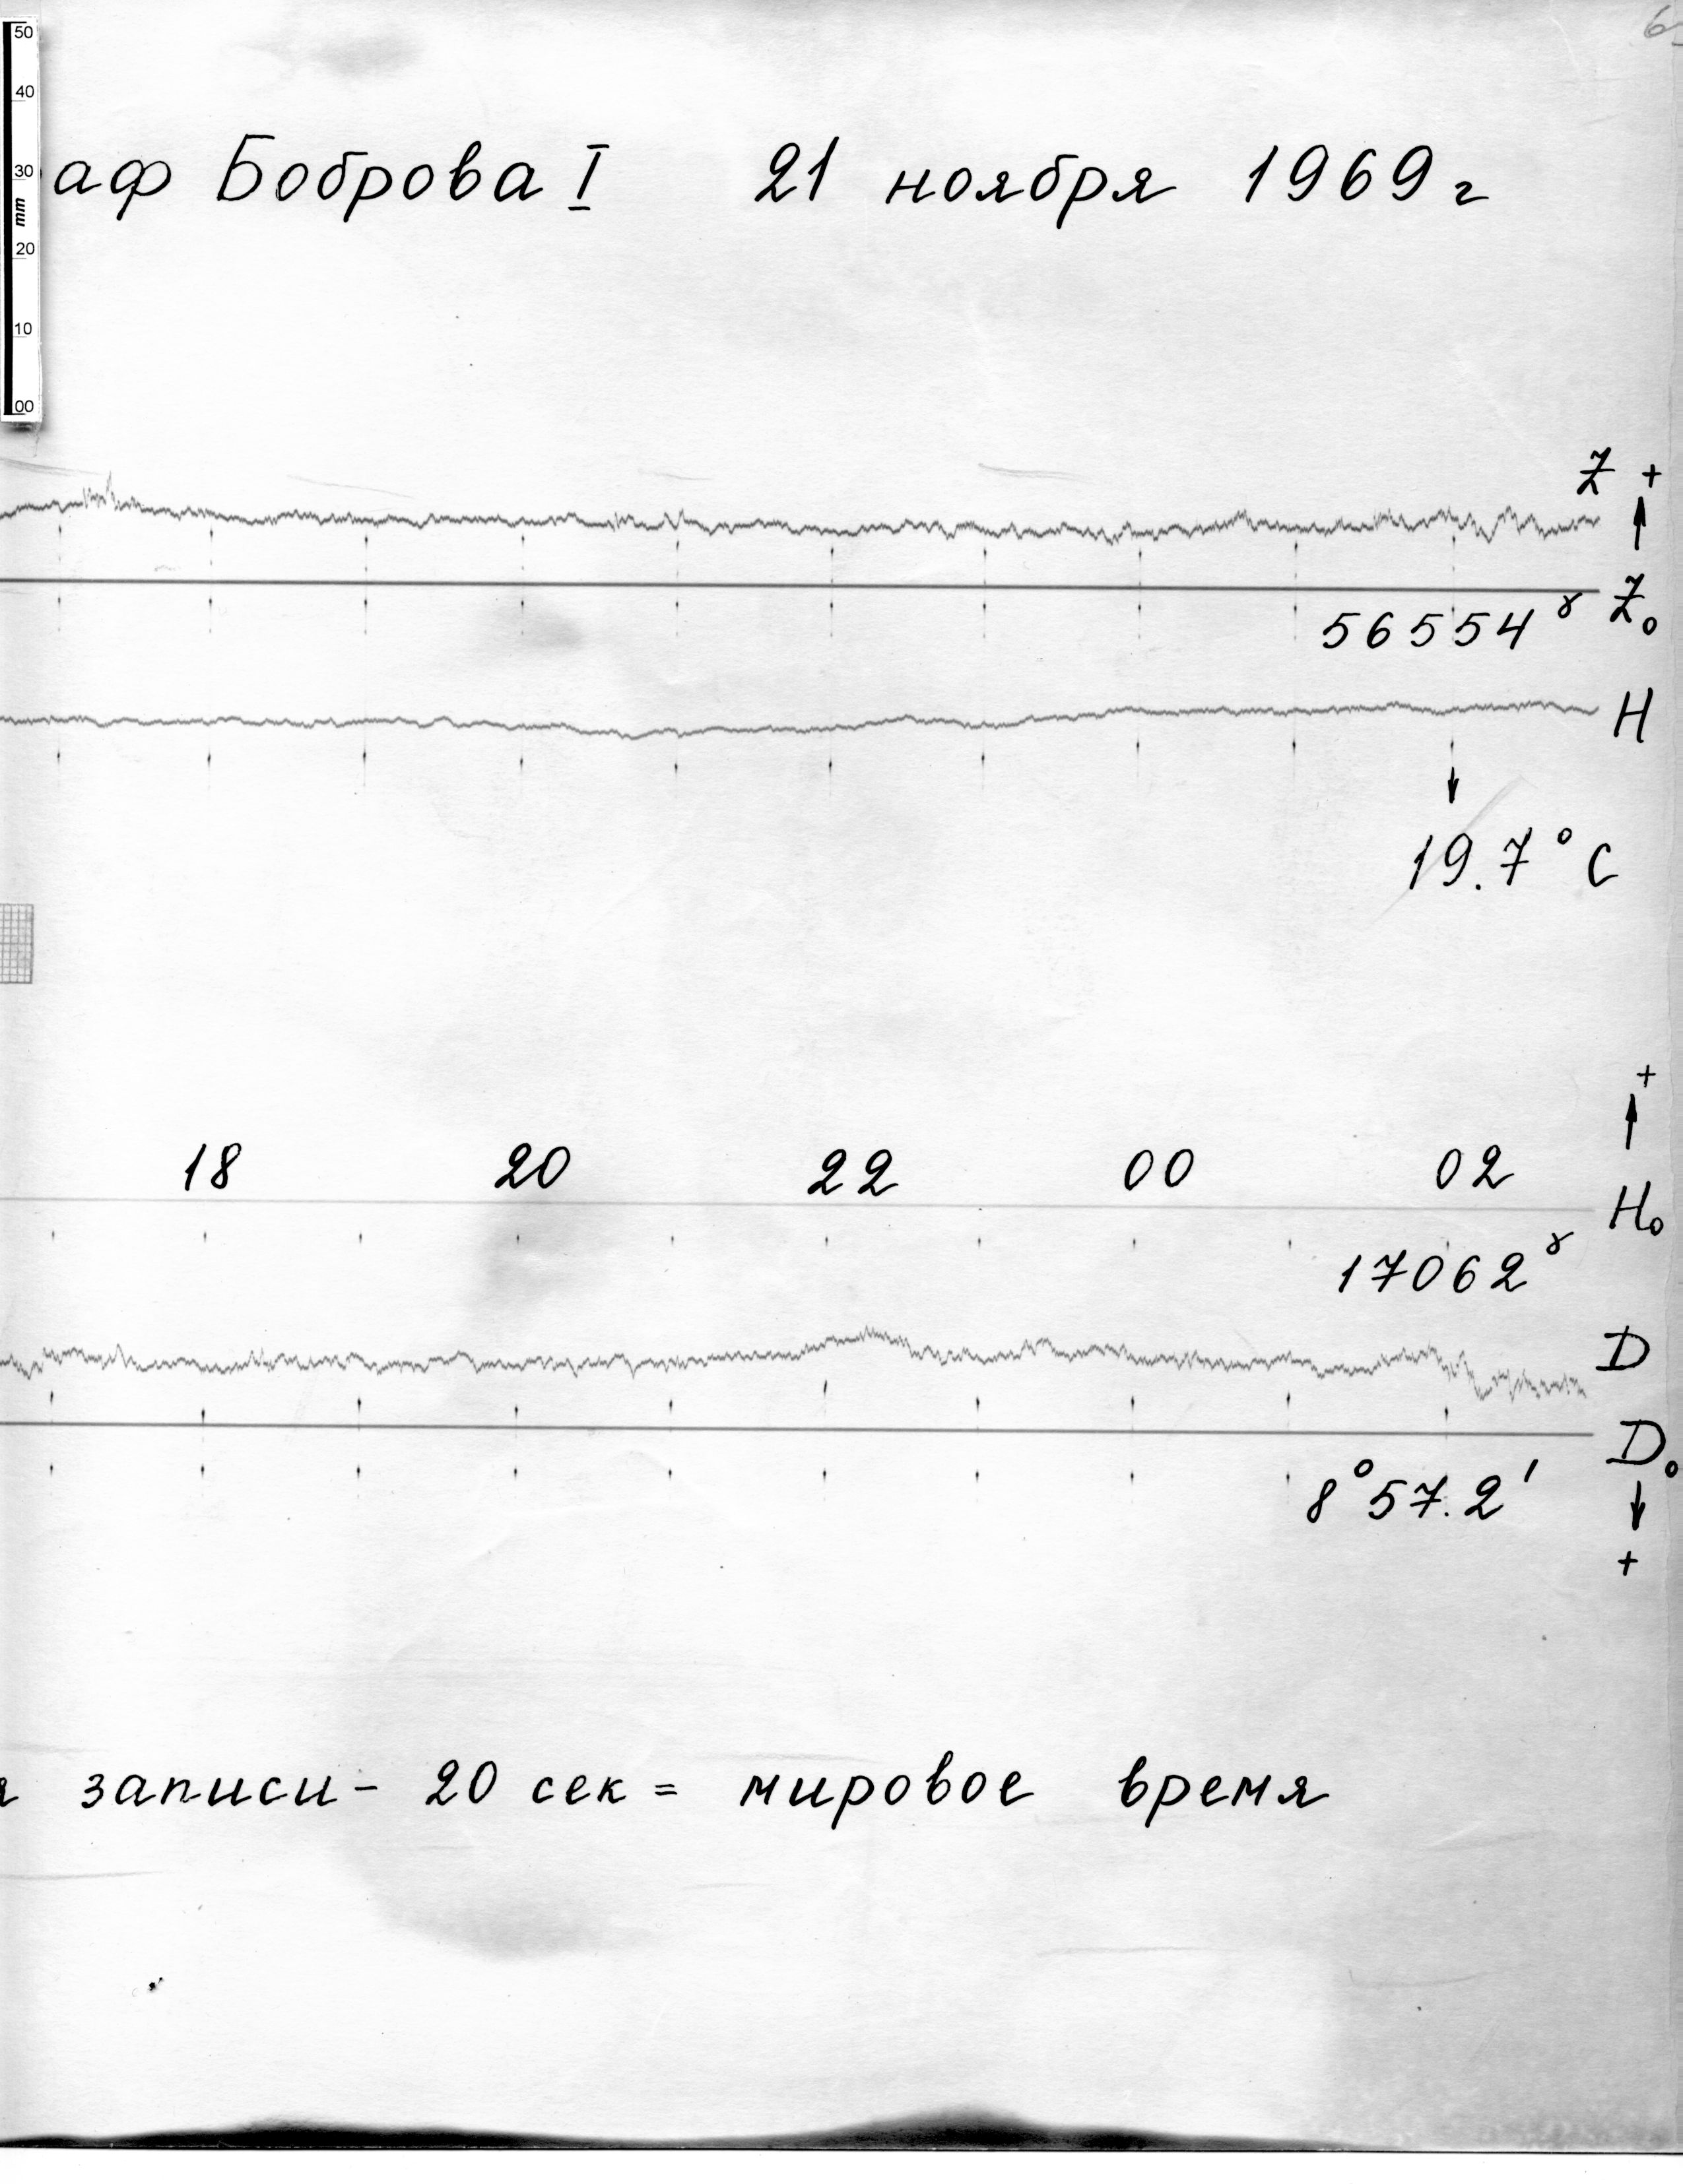 50
40
30
mm
20
10
00
аф Боброва I 21 ноября 1969 г
Z +
56554 γ Z₀
H
19.7° C
+
18 20 22 00 02
H₀
17062 γ
D
D₀
8° 57.2'
+
записи - 20 сек = мировое время